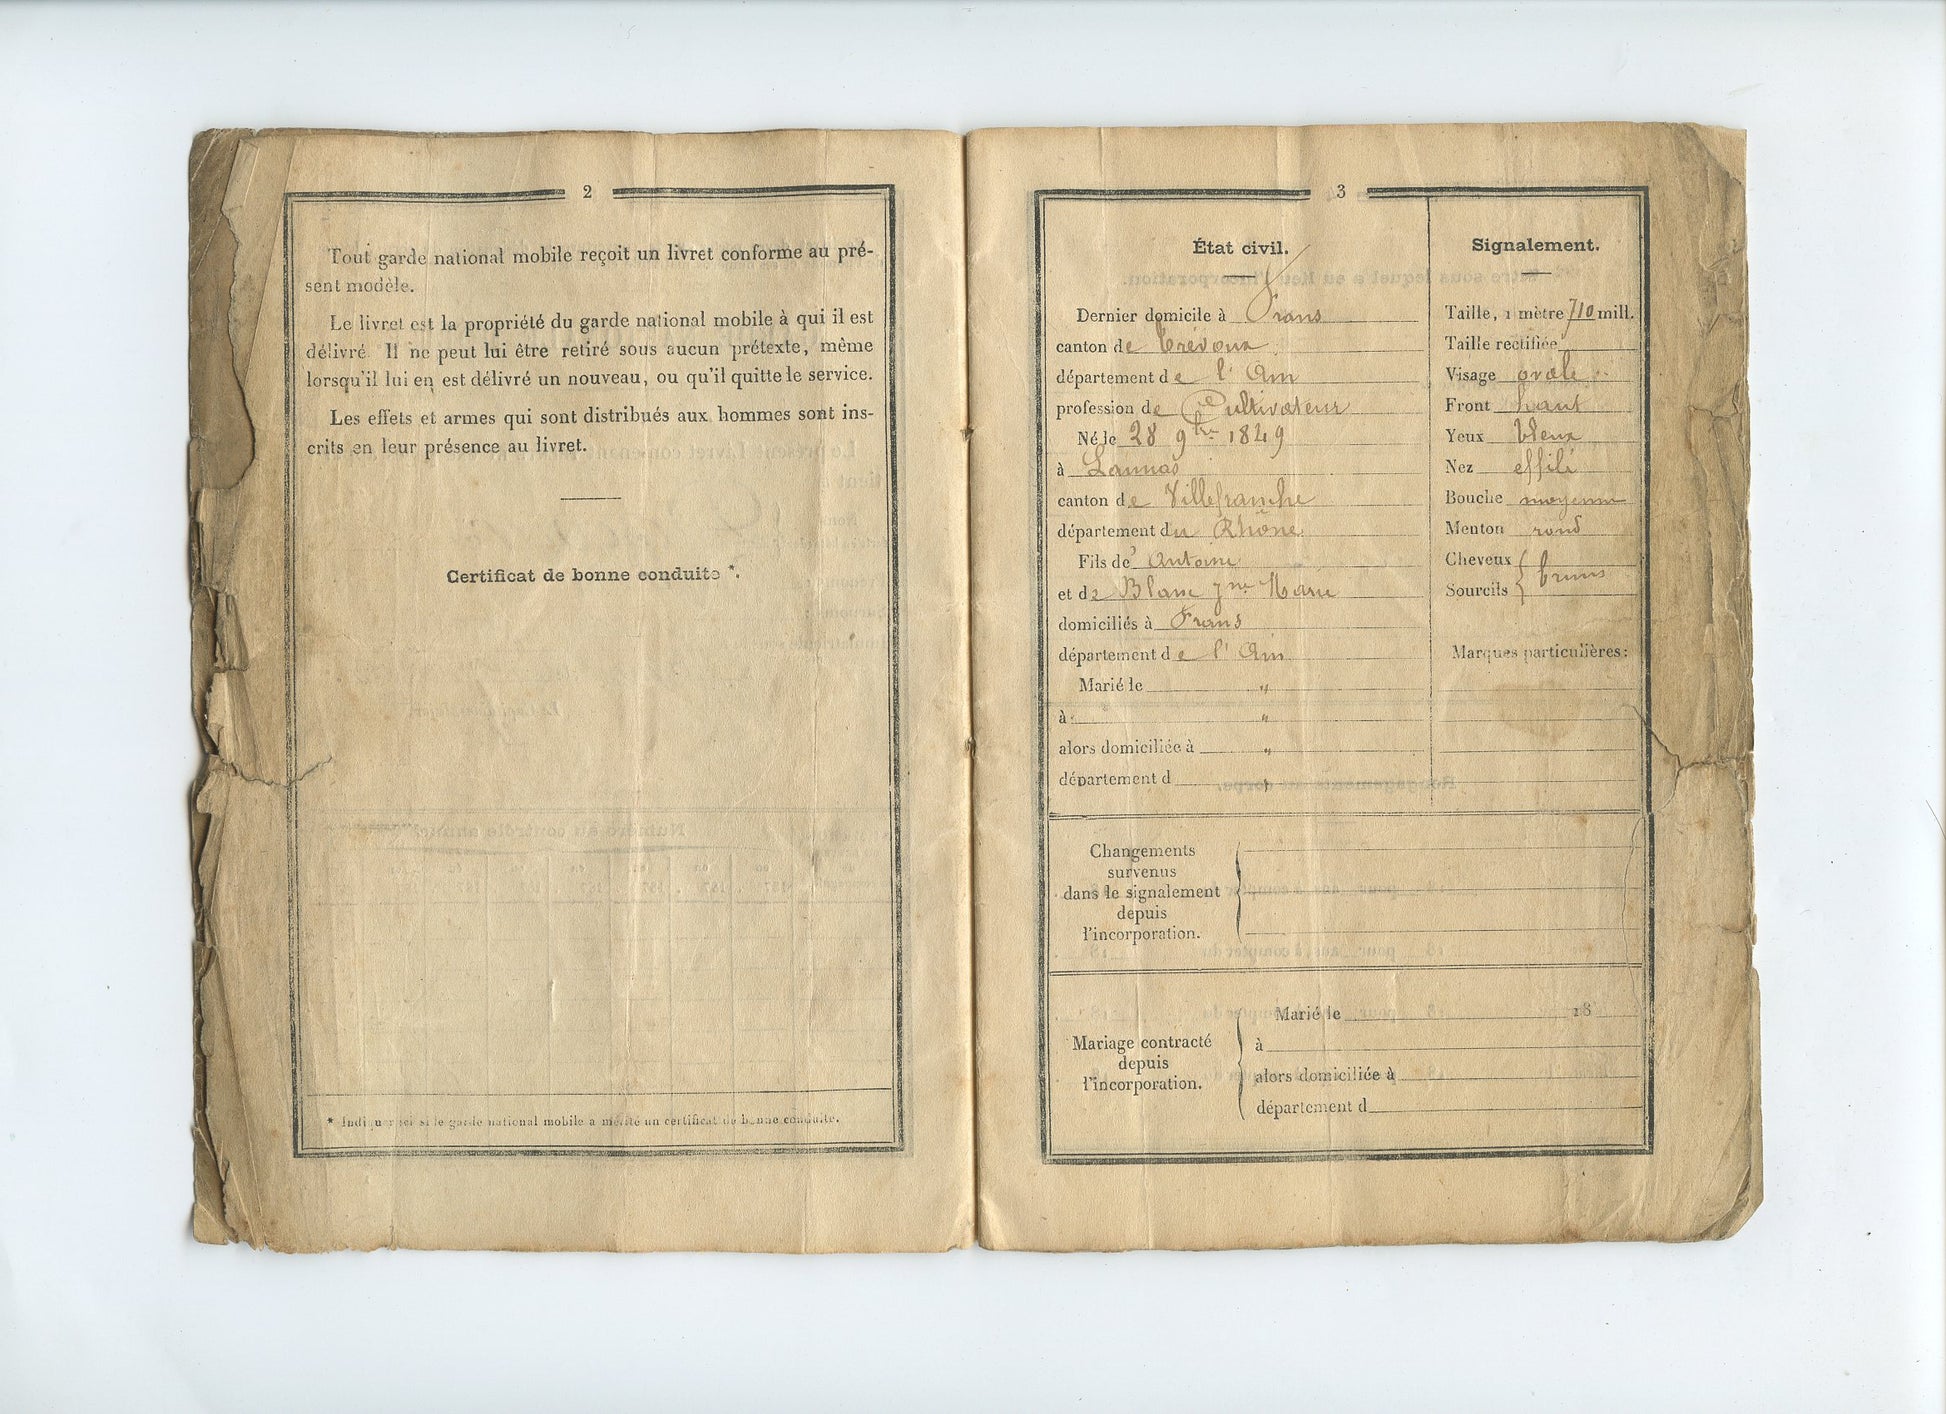 2
Tout garde national mobile reçoit un livret conforme au pré-
sent modèle.
Le livret est la propriété du garde national mobile à qui il est
délivré. Il ne peut lui être retiré sous aucun prétexte, même
lorsqu'il lui en est délivré un nouveau, ou qu'il quitte le service.
Les effets et armes qui sont distribués aux hommes sont ins-
crits en leur présence au livret.
Certificat de bonne conduite *.
* Indiquer ici si le garde national mobile a mérité un certificat de bonne conduite.
3
État civil.
Dernier domicile à Frans
canton de Trévoux
département de l'Ain
profession de Cultivateur
Né le 28 9bre 1849
à
canton de Villefranche
département du Rhône
Fils de Antoine
et de Blanc Marie
domiciliés à Frans
département de l'Ain
Marié le "
à "
alors domiciliée à "
département d "
Signalement.
Taille, 1 mètre 710 mill.
Taille rectifiée
Visage ovale
Front haut
Yeux bleux
Nez effilé
Bouche moyenne
Menton rond
Cheveux
Sourcils { bruns
Marques particulières:
Changements
survenus
dans le signalement
depuis
l'incorporation.
Mariage contracté
depuis
l'incorporation.
Marié le 18
à
alors domiciliée à
département d